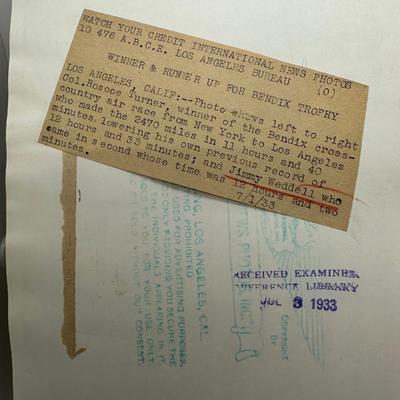 WATCH YOUR CREDIT INTERNATIONAL NEWS PHOTOS
10 476 A.B.C.E. LOS ANGELES BUREAU (O)
WINNER & RUNNER UP FOR BENDIX TROPHY
LOS ANGELES, CALIF:--Photo shows left to right
Col.Roscoe Turner, winner of the Bendix cross-
country air race from New York to Los Angeles
who made the 2470 miles in 11 hours and 40
minutes.lowering his own previous record of
12 hours and 33 minutes; and Jimmy Weddell who
came in second whose time was 12 hours and two
minutes.
7/1/33
RECEIVED EXAMINER
REFERENCE LIBRARY
JUL 3 1933
LOS ANGELES, CAL
PROHIBITED
USED FOR ADVERTISING PURPOSES
ONLY PROVIDING YOU SECURE THE
INDIVIDUALS APPEARING IN IT.
YOU FOR YOUR USE ONLY.
WITHOUT OUR CONSENT.
INC.
COPYRIGHT
BY